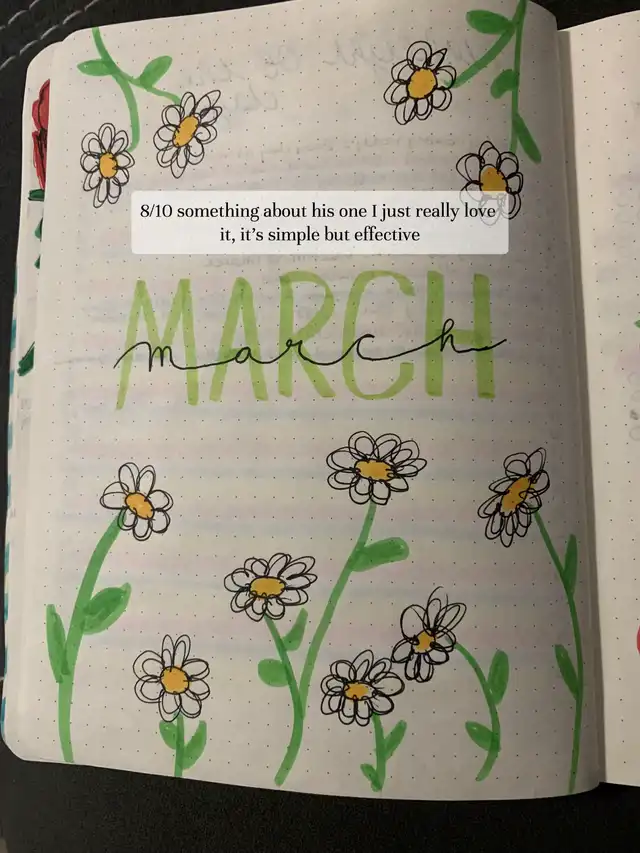 8/10 something about his one I just really love
it, it's simple but effective
MARCH
march